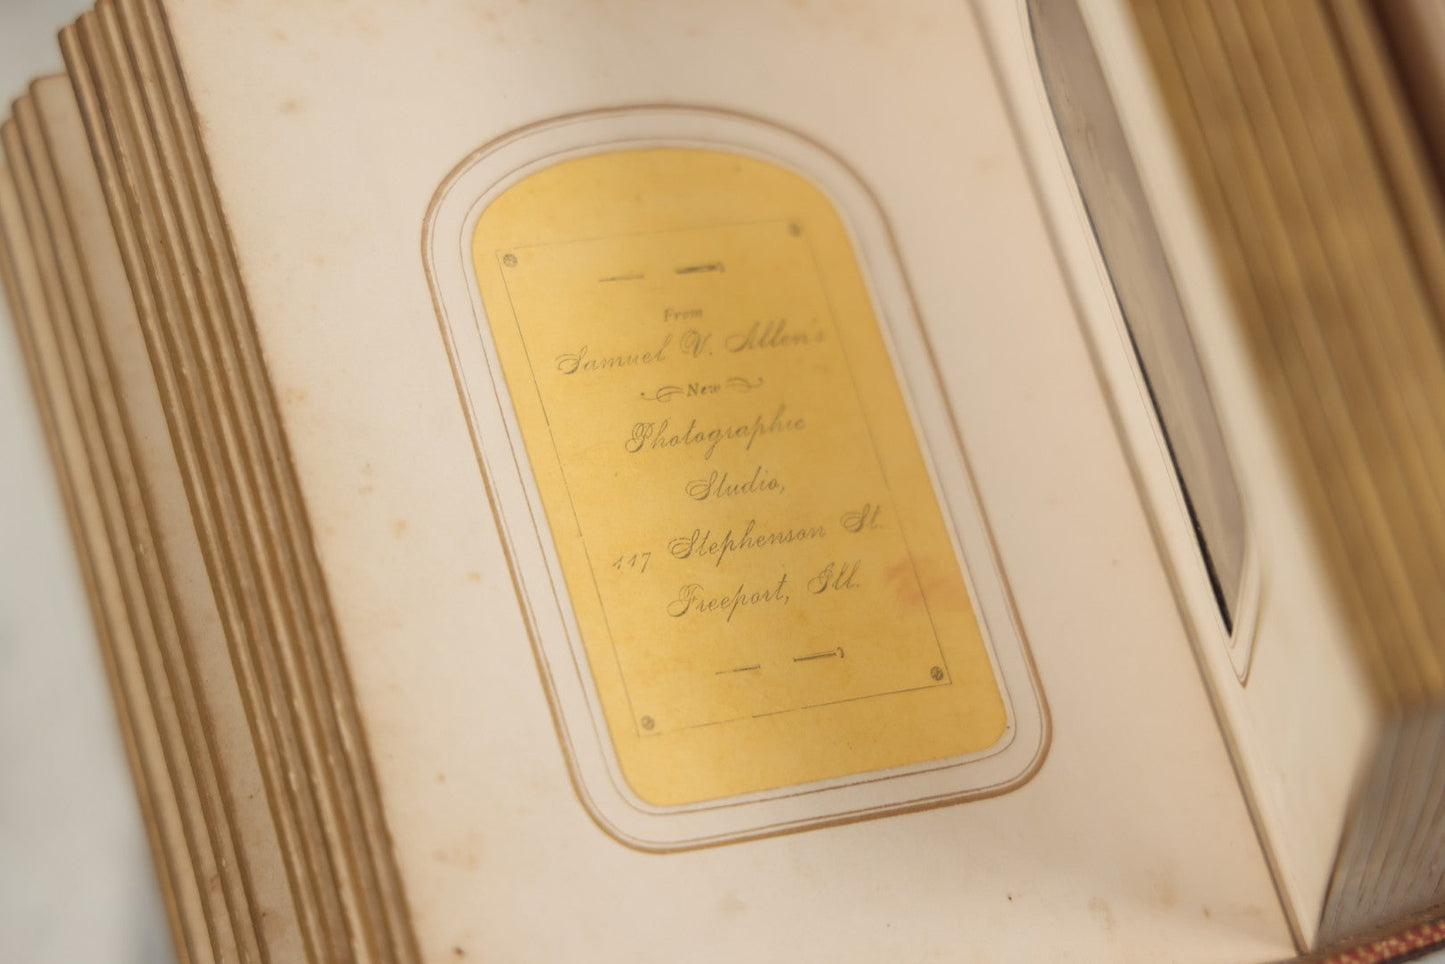 From
Samuel V. Allen's
New
Photographic
Studio,
117 Stephenson St.
Freeport, Ill.